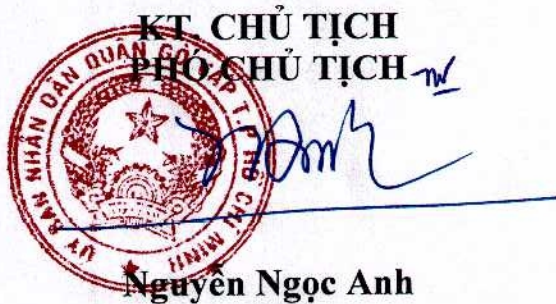 KT. CHỦ TỊCH
PHÓ CHỦ TỊCH
ỦY BAN NHÂN DÂN QUẬN GÒ VẤP T.P HỒ CHÍ MINH
Nguyễn Ngọc Anh